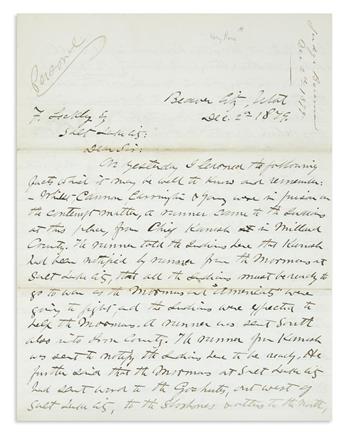 Personal
Beaver City, Utah
Dec. 2d 1879.
F. Lockley Esq
Salt Lake City:
Dear Sir:
On yesterday I learned the following
facts which it may be well to know and remember:
- Whilst Cannon Carrington & Young were in prison in
the contempt matter, a runner came to the Indians
at this place, from Chief Kanosh in Millard
County. The runner told the Indians here that Kanosh
had been notified by runner from the Mormons at
Salt Lake City, that all the Indians must be ready to
go to war as the Mormons and "Americats" were
going to fight and the Indians were expected to
help the Mormons. A runner was sent South
also into Iron County. The runner from Kanosh
was sent to notify the Indians here to be ready. He
further said that the Mormons at Salt Lake City
had sent word to the Goshutes, out west of
Salt Lake City, to the Shoshones northern to the North,